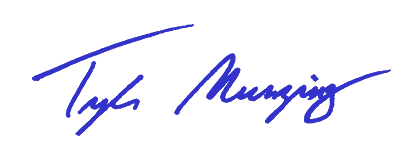 Tyler Munzing